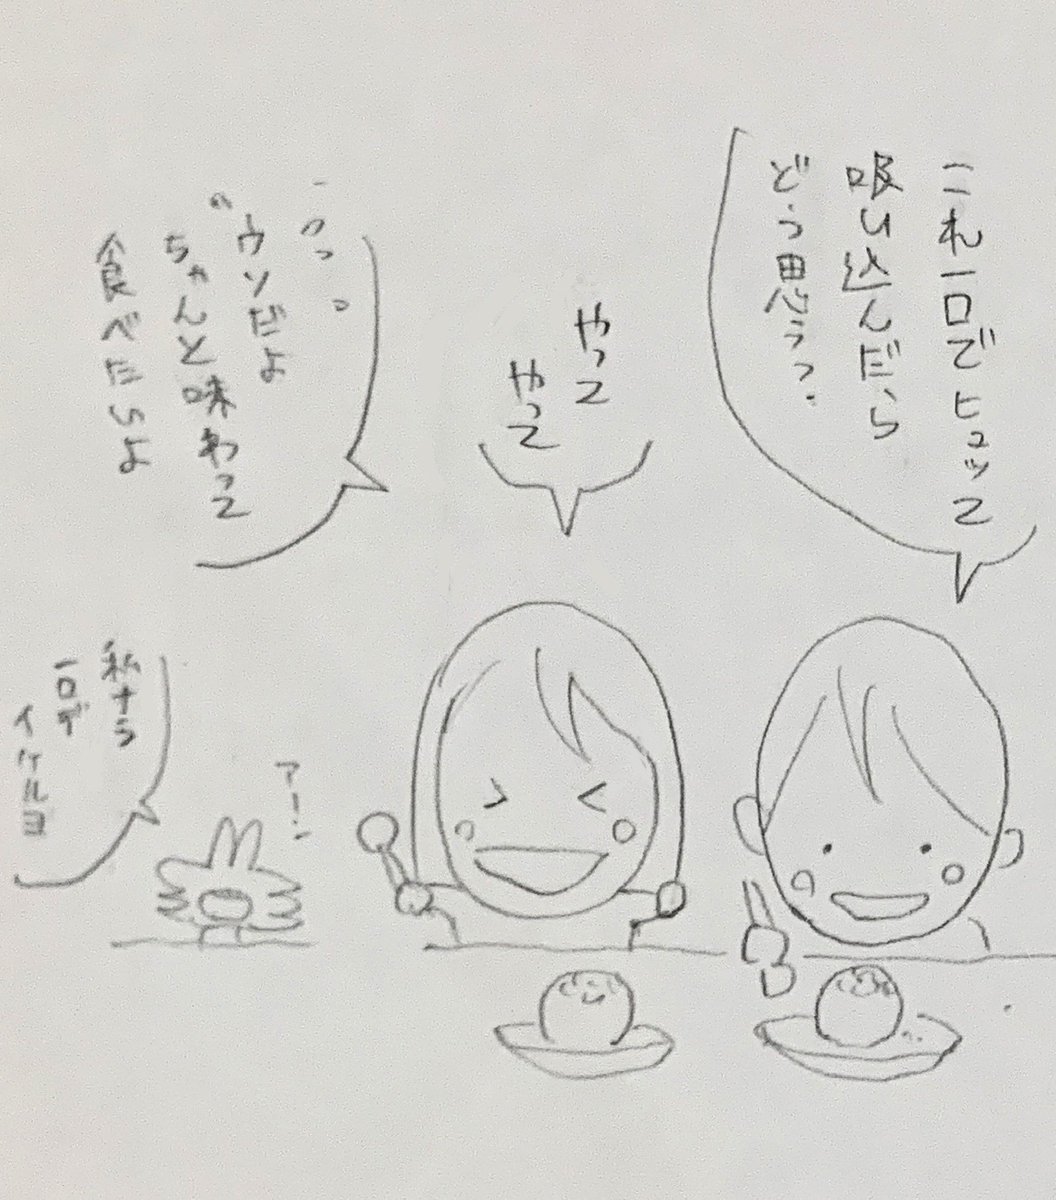 これ一口でヒュッて
吸い込んだら
どう思う?
やって
やって
ウソだよ
ちゃんと味わって
食べだいよ
アーン
私なら
一口デ
イケルヨ